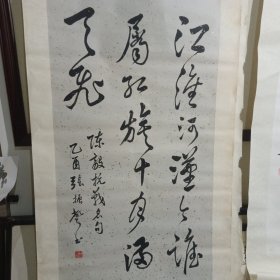 江淮河漢今誰
屬红旗十月滿
天飛
陳毅抗戰名句
乙酉張振书